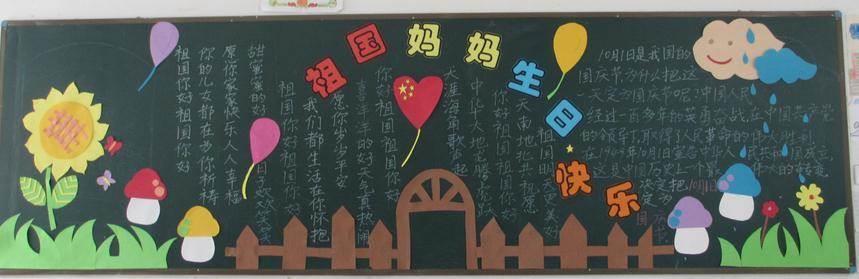 祖国妈妈生日快乐
甜蜜蜜的
原你家家快乐人人幸福
你的儿女都在为你祈祷
祖国你好祖国你好
你好祖国祖国你好
喜洋洋的好天气真热闹
愿你岁岁平安
我们都生活在你怀抱
祖国你好祖国你好
祖国明天更美好
天南地北共祝愿
你好祖国祖国你好
中华大地
天涯海角歌声起
10月1日是我国的
国庆节为什么把这
一天定为国庆节呢?中国人民
经过一百多年的英勇奋战,在中国共产党
的领导下,取得了人民革命的伟大胜利
在1949年10月1日宣告中华人民共和国成立,
这是中国历史上一个最伟大的转变
决定把10月1日
定为
国庆节